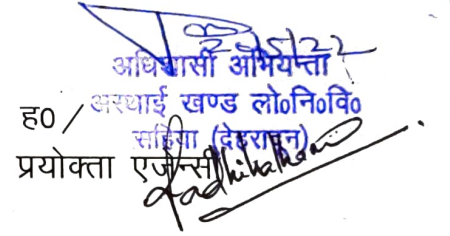 अधिशासी अभियन्ता
अस्थाई खण्ड लो०नि०वि०
ह० /
सहिया (देहरादून)
प्रयोक्ता एजेन्सी